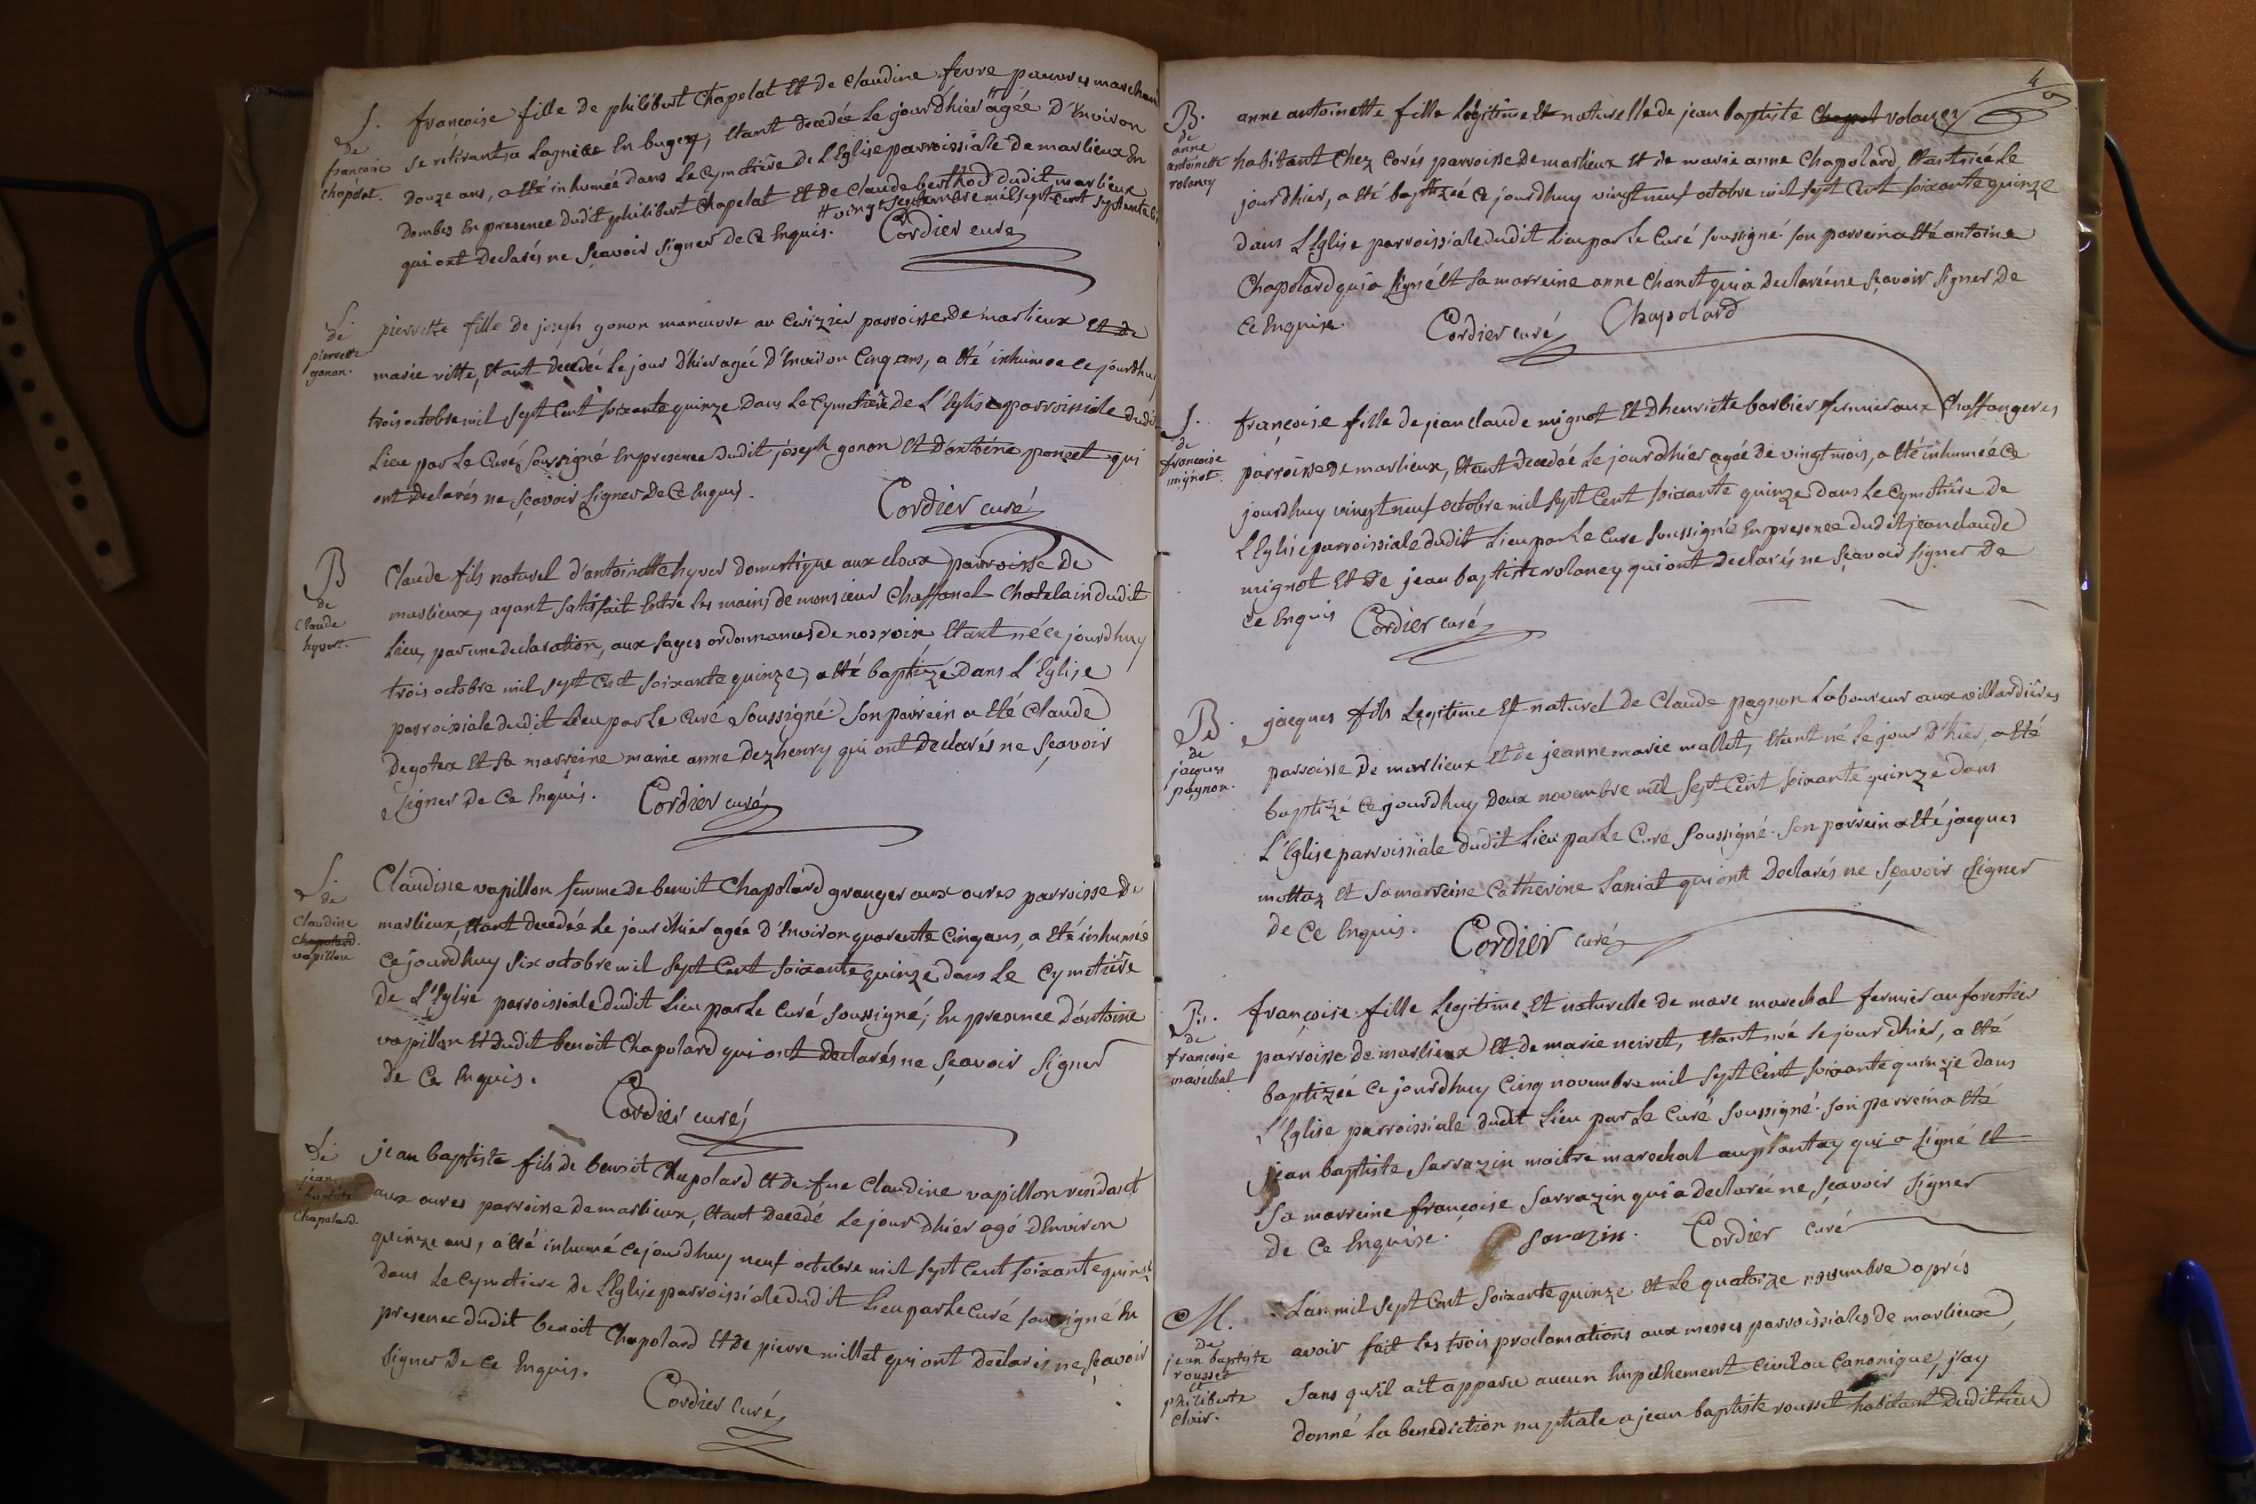 S.
de
francoise
chapelat.
françoise fille de philibert Chapelat Et de Claudine fevre pauvres marchan
se retirant a Lagnieu En bugey, Etant decedée Le jourdhier agée D'Environ
douze ans, a Eté inhumée dans Le Cymetière de L'Eglise parroissiale de marlieux En
Dombes En presence dudit philibert Chapelat Et de Claude berthod dudit marlieux
vingt septembre mil sept cent septante
qui ont Declarés ne sçavoir signer De Ce Enquis. Cordier curé
S.
de
pierrette
gonon.
pierrette fille De joseph gonon manœuvre au Cuizier parroisse de marlieux et de
marie vitte, Etant Decedée Le jour D'hier agée D'Environ Cinq ans, a Eté inhumée Ce jourdhuy
trois octobre mil sept Cent soixante quinze Dans Le Cymetière De L'Eglise parroissiale dudit
Lieu par Le Curé soussigné En presence dudit joseph gonon Et D'antoine ponçet qui
ont Declarés ne sçavoir signer De Ce Enquis.
Cordier curé
B
de
Claude
hyver.
Claude fils naturel d'antoinette hyver domestique aux cloux parroisse de
marlieux, ayant satisfait Entre Les mains de monsieur Chaffanel Chatelain dudit
Lieu, par une declaration, aux sages ordonnances de nos roix Etant né Ce jourdhuy
trois octobre mil sept Cent soixante quinze, a Eté baptizé Dans L'Eglise
parroissiale dudit Lieu par Le Curé soussigné son parrein a Eté Claude
Degotex Et sa marreine marie anne Dezhenry qui ont Declarés ne sçavoir
signer De Ce Enquis. Cordier curé
S.
de
Claudine
chapolard.
vapillon
Claudine vapillon femme de benoit Chapolard granger aux oures parroisse De
marlieux, Etant decedée Le jour d'hier agée d'Environ quarente Cinq ans, a Eté inhumée
Ce jourdhuy six octobre mil sept Cent soixante quinze dans Le Cymetière
de L'Eglise parroissiale dudit Lieu par Le Curé soussigné; En presence d'antoine
vapillon Et Dudit benoit Chapolard qui ont Declarés ne sçavoir signer
de Ce Enquis.
Cordier curé
S.
jean
baptiste
Chapolard.
jean baptiste fils de benoit Chapolard Et de fue Claudine vapillon residant
aux oures parroisse de marlieux, Etant Decedé Le jour dhier agé d'Environ
quinze ans, a Eté inhumé Ce jourdhuy neuf octobre mil sept Cent soixante quinze
Dans Le Cymetiere De L'Eglise parroissiale dudit Lieu par Le Curé soussigné En
presence dudit benoit Chapolard Et De pierre millet qui ont Declarés ne sçavoir
signer De Ce Enquis.
Cordier curé
4
B.
de
anne
antoinette
rolancy
anne antoinette fille Legitime Et naturelle de jean baptiste Chapol volancey
habitant Chez Corés parroisse de marlieux Et de marie anne Chapolard Etant née Le
jour dhier, a Eté baptizée Ce jourdhuy vingt neuf octobre mil sept Cent soixante quinze
dans L'Eglise parroissiale dudit Lieu par Le Curé soussigné son parrein a Eté antoine
Chapolard qui a signé Et sa marreine anne Chanet qui a declarée ne sçavoir signer De
Ce Enquise. Cordier curé Chapolard
S.
de
francoise
mignot.
françoise fille de jean claude mignot Et D'henriette barbier fermier aux Chaffangeres
parroisse De marlieux, Etant Decedée Le jour dhier agée de vingt mois, a Eté inhumée Ce
jourdhuy vingt neuf octobre mil sept Cent soixante quinze dans Le Cymetière De
L'Eglise parroissiale dudit Lieu par Le Curé soussigné En presence dudit jean claude
mignot Et De jean baptiste rolancy qui ont declarés ne sçavoir signer De
Ce Enquis Cordier curé
B.
de
jacques
pagnon.
jacques fils Legitime Et naturel De Claude pagnon Laboureur aux villardières
parroisse De marlieux Et de jeanne marie mallet, Etant né Le jour D'hier, a Eté
baptizé Ce jourdhuy deux novembre mil sept Cent soixante quinze dans
L'Eglise parroissiale dudit Lieu par Le Curé soussigné. son parrein a Eté jacques
mottaz Et sa marreine Catherine Saniat qui ont Declarés ne sçavoir signer
de Ce Enquis. Cordier curé
B.
de
francoise
maréchal
françoise fille Legitime Et naturelle de marc marechal fermier au forestier
parroisse de marlieux Et de marie neiret, Etant née Le jour dhier, a Eté
baptizée Ce jourdhuy Cinq novembre mil sept Cent soixante quinze dans
L'Eglise parroissiale dudit Lieu par Le Curé soussigné. son parrein a Eté
jean baptiste Sarrazin maitre marechal au plantay qui a signé Et
sa marreine françoise Sarrazin qui a declarée ne sçavoir signer
de Ce Enquise. Sarazin. Cordier curé
M.
de
jean baptiste
rousset
et
philiberte
Clair.
L'an mil sept Cent soixante quinze Et Le quatorze novembre après
avoir fait Les trois proclamations aux messes parroissiales de marlieux,
sans qu'il ait apparu aucun Empechement Civil ou Canonique, j'ay
donné La benediction nuptiale a jean baptiste rousset habitant dudit Lieu